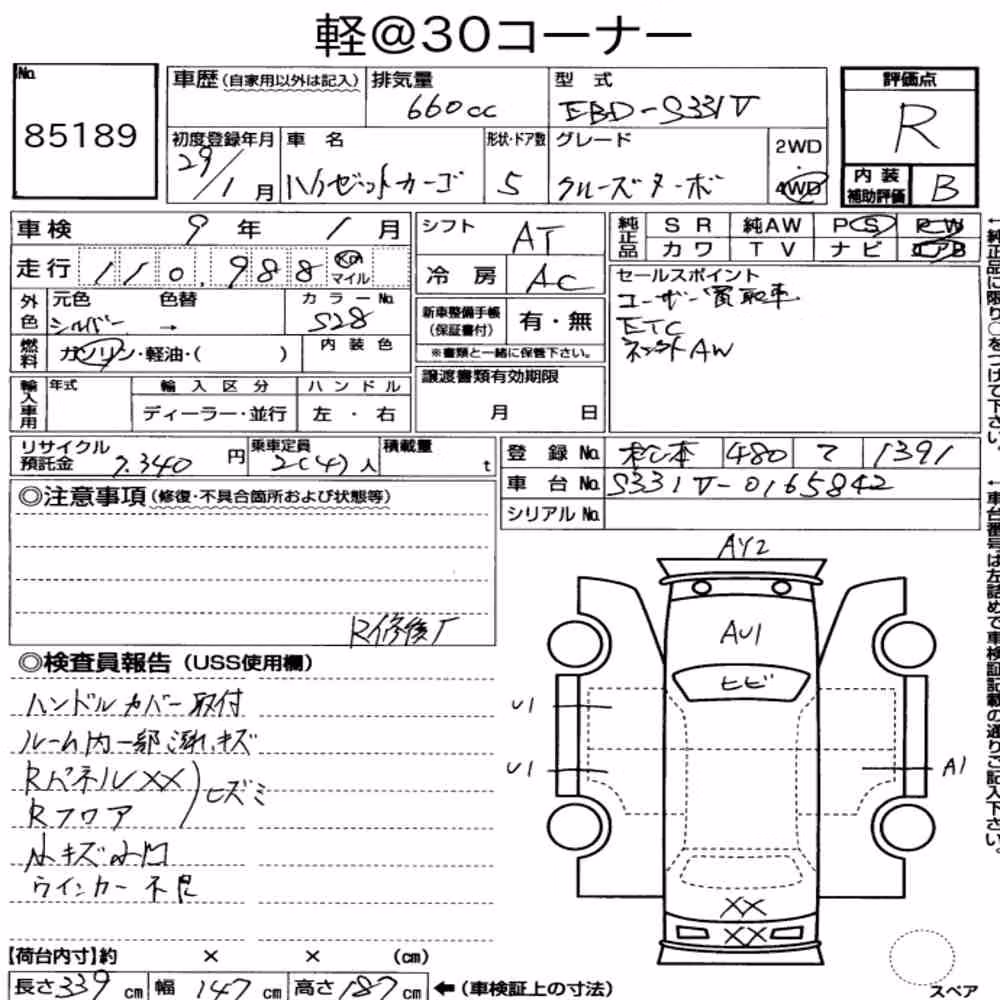 軽@30コーナー
No. 85189
車歴 (自家用以外は記入)
排気量 660cc
型式 EBD-S331V
評価点 R
初度登録年月 29/1月
車名 ハイゼットカーゴ
形状・ドア数 5
グレード クルーズターボ
2WD・4WD
内装補助評価 B
車検 9年 1月
走行 110,988 Km マイル
外色 元色 シルバー 色替 → カラーNo. S28
燃料 ガソリン・軽油・( ) 内装色
輸入車用 年式 輸入区分 ディーラー・並行 ハンドル 左・右
シフト AT
冷房 AC
新車整備手帳(保証書付) 有・無
※書類と一緒に保管下さい。
譲渡書類有効期限 月 日
純正品 SR 純AW PS PW
カワ TV ナビ エアB
セールスポイント
ユーザー買取車
ETC
←純正品に限り○をつけて下さい。
リサイクル預託金 7.340円
乗車定員 2(4)人
積載量 t
登録No. 松本 480 1391
車台No. S331V-0165842
シリアルNo.
←車台番号は左詰めで車検証記載の通りご記入下さい。
◎注意事項(修復・不具合箇所および状態等)
R修復有
◎検査員報告(USS使用欄)
ハンドルカバー取付
ルーム内一部汚れ、キズ
Rパネル XX
Rフロア
ヒズミ
小キズ小凹
ウインカー不良
AY2
AU1
ヒビ
U1
U1
A1
XX
XX
【荷台内寸】約 × × (cm)
長さ339cm 幅147cm 高さ187cm ←(車検証上の寸法)
スペア